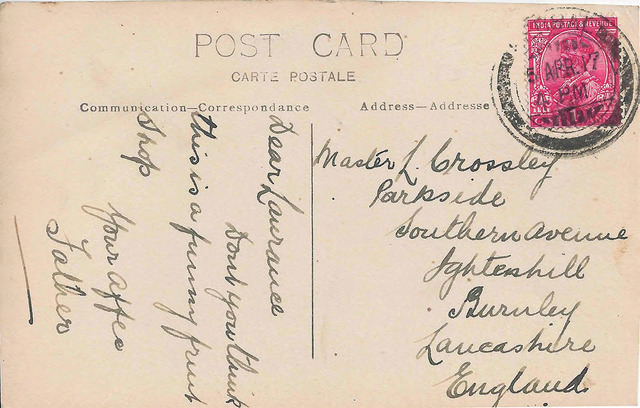 POST CARD
CARTE POSTALE
Communication—Correspondance
Address—Addresse
INDIA POSTAGE & REVENUE
APR.17
PM
Dear Laurance
Dont you think
this is a funny fruit
Shop
Your affec
Father
Master L. Crossley
Parkside
Southern Avenue
Ightenhill
Burnley
Lancashire
England